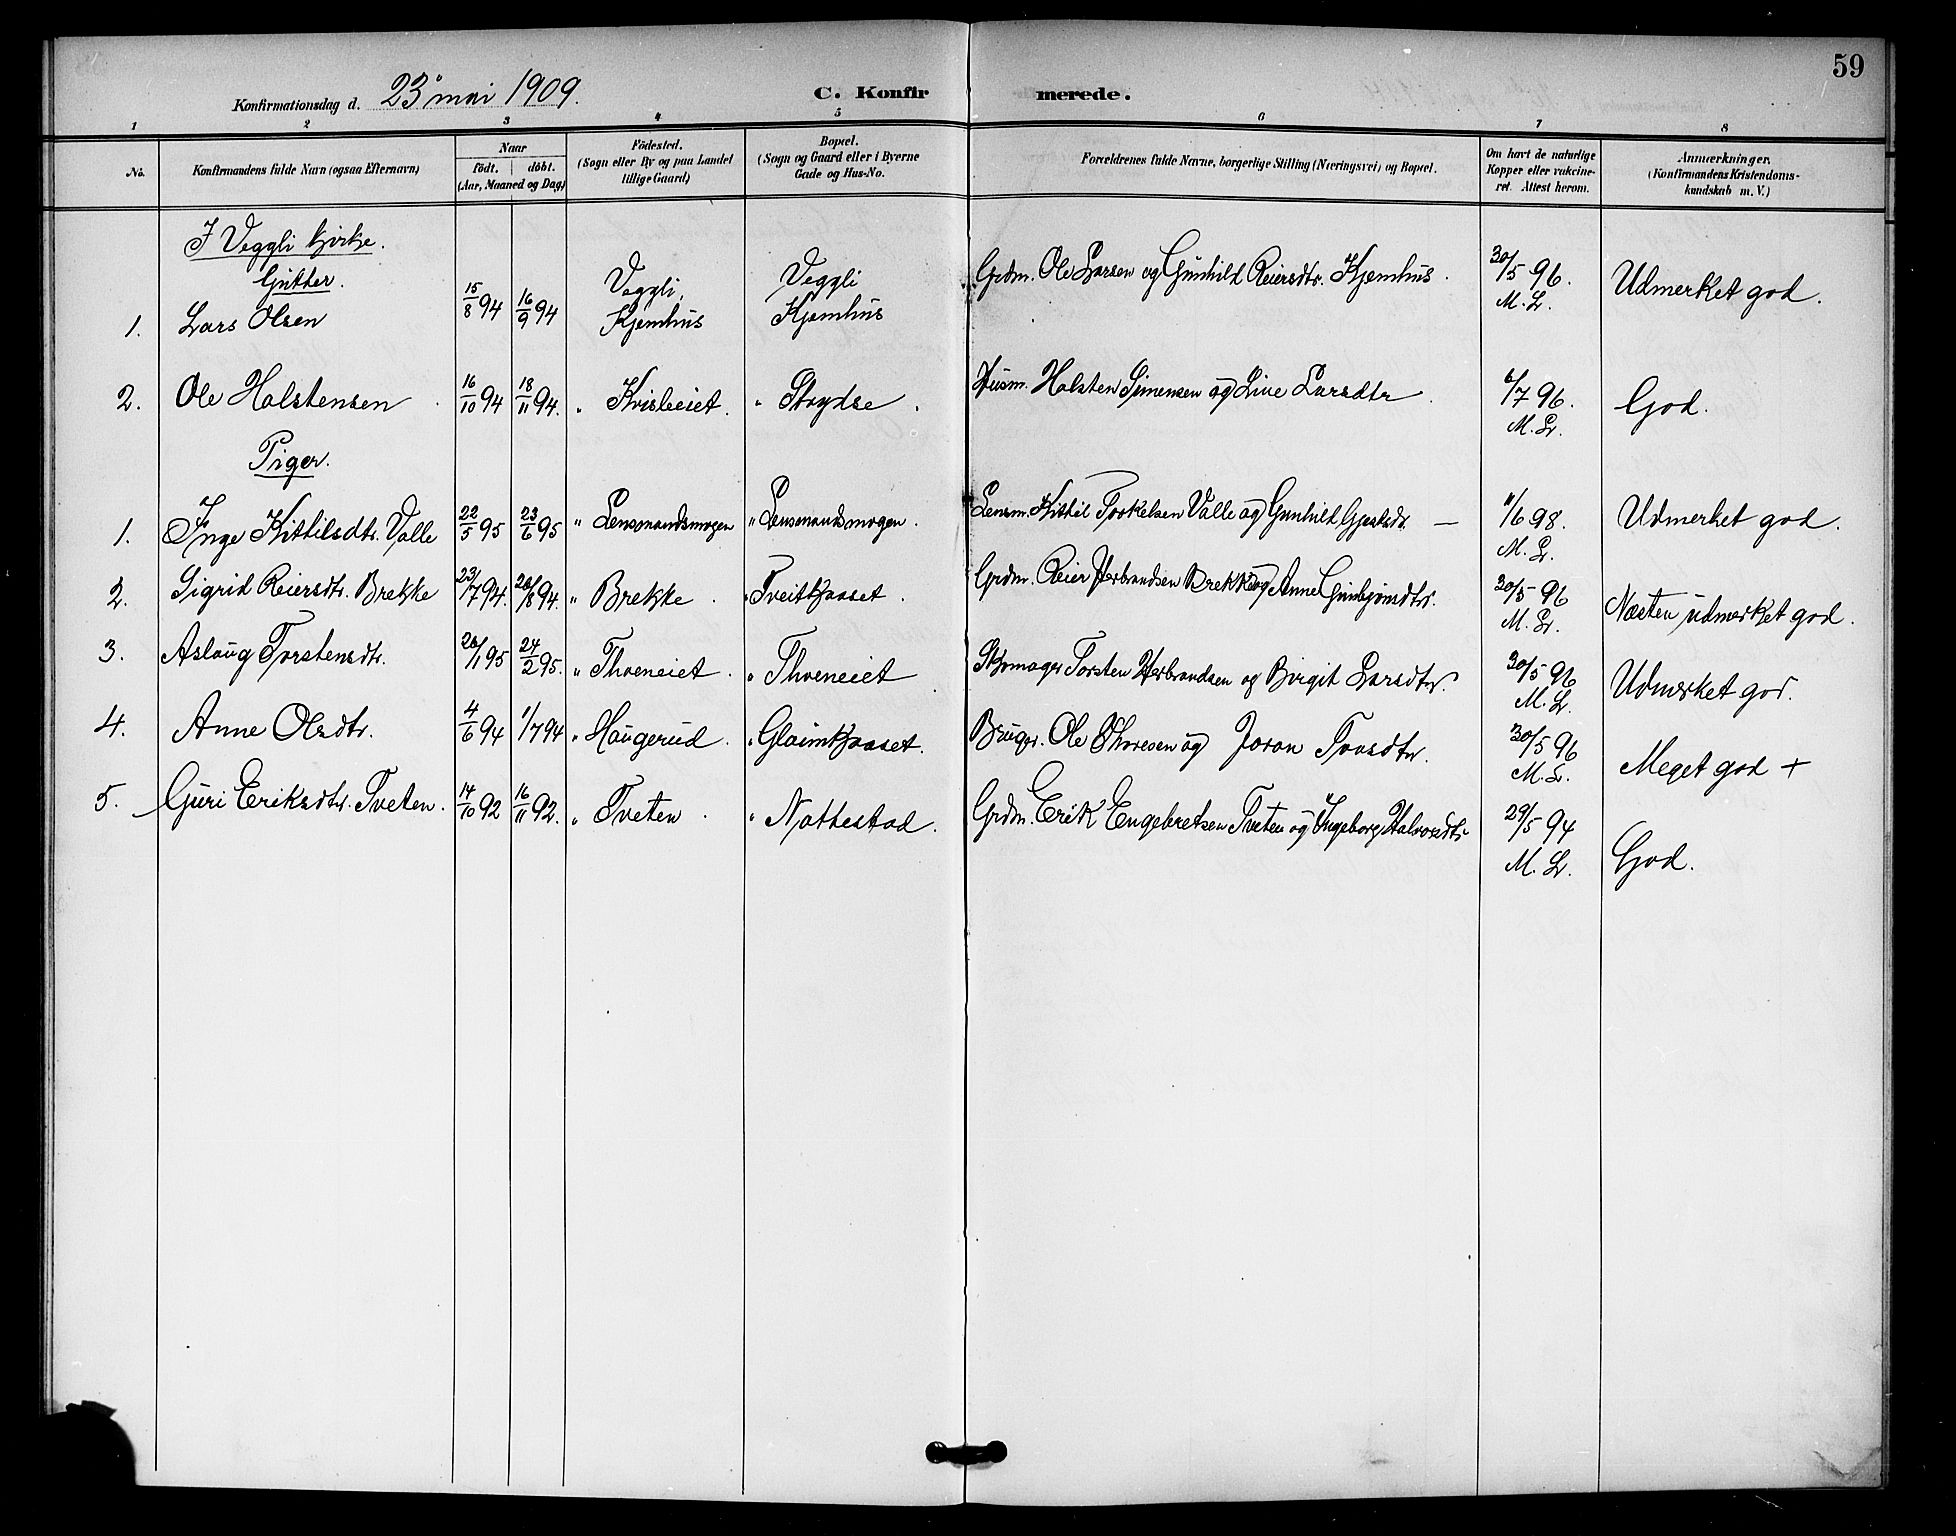 59
Konfirmationsdag d. 23 mai 1909.
C. Konfirmerede.
1 2 3 4 5 6 7 8
No.
Konfirmandens fulde Navn (ogsaa Efternavn)
Naar
födt. döbt.
(Aar, Maaned og Dag)
Födested.
(Sogn eller By og paa Landet
tillige Gaard)
Bopæl.
(Sogn og Gaard eller i Byerne
Gade og Hus-No.
Forældrenes fulde Navne, borgerlige Stilling (Næringsvei) og Bopæl.
Om havt de naturlige
Kopper eller vakcine-
ret. Attest herom.
Anmærkninger.
(Konfirmandens Kristendoms-
kundskab m. V.)
I Veggli kirke.
Gutter.
1. Lars Olsen 15/8 94 16/9 94 Veggli, Kjemhus Veggli Kjemhus Grdm. Ole Larsen og Gunhild Reiersdtr. Kjemhus. 30/5 96. M. L. Udmerket god.
2. Ole Halstensen 16/10 94 18/11 94. " Kvisleeiet. " Stoydse. Husm. Halsten Simensen og Live Larsdtr. 6/7 96. M. L. God.
Piger.
1. Inge Kittilsdtr. Valle 22/5 95 23/6 95 " Lensmandsmogen " Lensmandsmogen. Lensm. Kittil Torkelsen Valle og Gunhild — 11/6 98. M. L. Udmerket god.
2. Sigrid Reiersdtr. Brekke 23/7 94. 26/8 94. " Brekke. " Tveitkaaset. Grdm. Reier Herbrandsen Brekke og Anne Gunbjørnsdtr. 30/5 96 M. L. Næsten udmerket god.
3. Aslaug Torstensdtr. 26/1 95 24/2 95. " Thoeneiet. " Thoeneiet Skomager Torsten Herbrandsen og Birgit Larsdtr. 30/5 96 M. L. Udmerket god.
4. Anne Olsdtr. 4/6 94 1/7 94 " Haugerud. " Glaimkaaset. Bruger. Ole Thoresen og Joron 30/5 96 M. L. Meget god +
5. Guri Eriksdtr. Tveten. 14/10 92 16/11 92. " Tveten. " Nattestad. Grdm. Erik Engebretsen Tveten og Ingeborg Halvorsdtr 29/5 94 M. L. God.